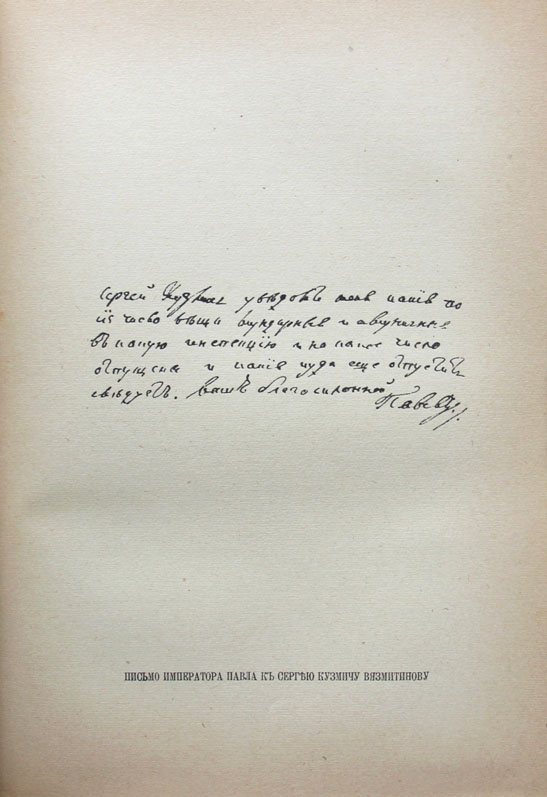 Сергей Кузмич уведомь меня какiя по
iе число вещи мундирныя и амуничныя
въ какую инспекцiю и на какое число
отпущены и какiя куда еще отпустить
следуетъ. вашъ благосклонной
Павелъ
ПИСЬМО ИМПЕРАТОРА ПАВЛА КЪ СЕРГѢЮ КУЗМИЧУ ВЯЗМИТИНОВУ